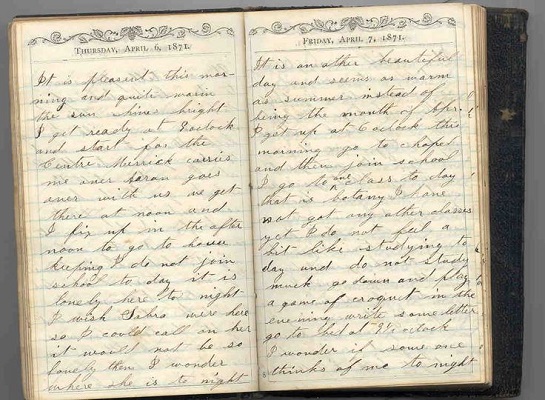 THURSDAY, APRIL 6, 1871.
It is pleasent this mor-
ning and quite warm
the sun shine bright
I get ready at 9 oclock
and start for the
Centre Merrick carries
me over Saran goes
over with us we get
there at noon and
I fix up in the after
noon to go to house
keeping I do not join
school to day it is
lonely here to night
I wish Libra were here
so I could call on her
it would not be so
lonely then I wonder
where she is to night
FRIDAY, APRIL 7, 1871.
It is an other beautiful
day and seems as warm
as summer instead of
being the month of Apr-
I get up at 6 oclock this
morning go to chapel
and then join school
I go to one class to day
that is botany I have
not got any other classes
yet I do not feel a
bit like studying to
day and do not study
much go down and play
a game of croquet in the
evening write some letter
go to bed at 9½ oclock
I wonder if some one
thinks of me to night